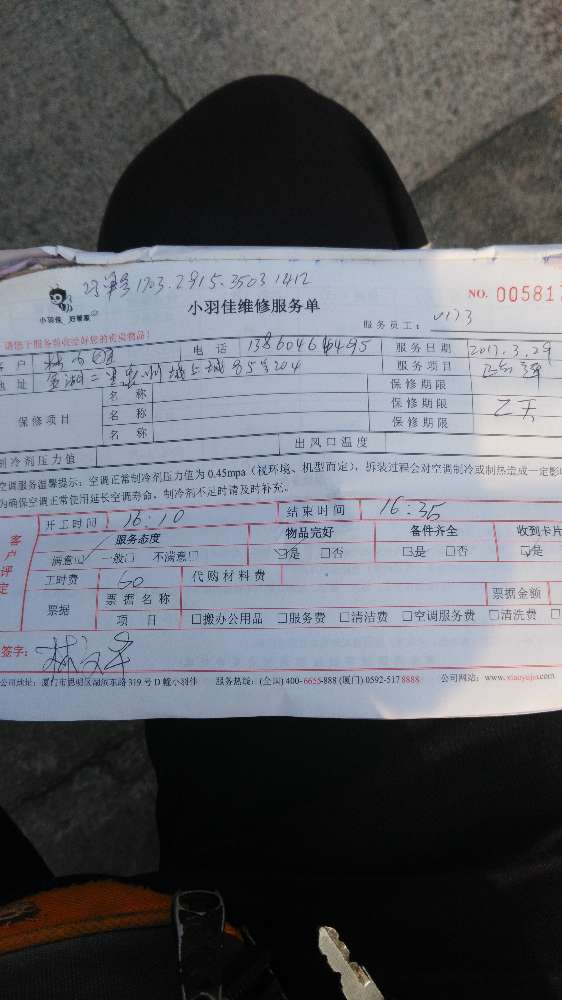 1703.2915.3503 1412
小羽佳 好管家
小羽佳维修服务单
NO. 005817
服务员工： V173
请您于服务前收好您的贵重物品！
客 户 电 话 服务日期 2017.3.29
地 址 服务项目
保修项目 名 称 保修期限
名 称 保修期限
名 称 保修期限
制冷剂压力值 出风口温度
空调服务温馨提示：空调正常制冷剂压力值为0.45mpa（视环境、机型而定），拆装过程会对空调制冷或制热造成一定影
为确保空调正常使用延长空调寿命，制冷剂不足时请及时补充。
客户评定
开工时间 16:10 结束时间 16:30
服务态度 物品完好 备件齐全 收到卡片
满意☑ 一般□ 不满意□ ☑是 □否 □是 □否 ☑是
工时费 60 代购材料费
票据 票据名称 票据金额
项 目 □搬办公用品 □服务费 □清洁费 □空调服务费 □清洗费 □
签字：
公司地址：厦门市思明区湖滨东路319号D幢小羽佳 服务热线：(全国) 400-6655-888 (厦门) 0592-5178888 公司网站：www.xiaoyujia.com